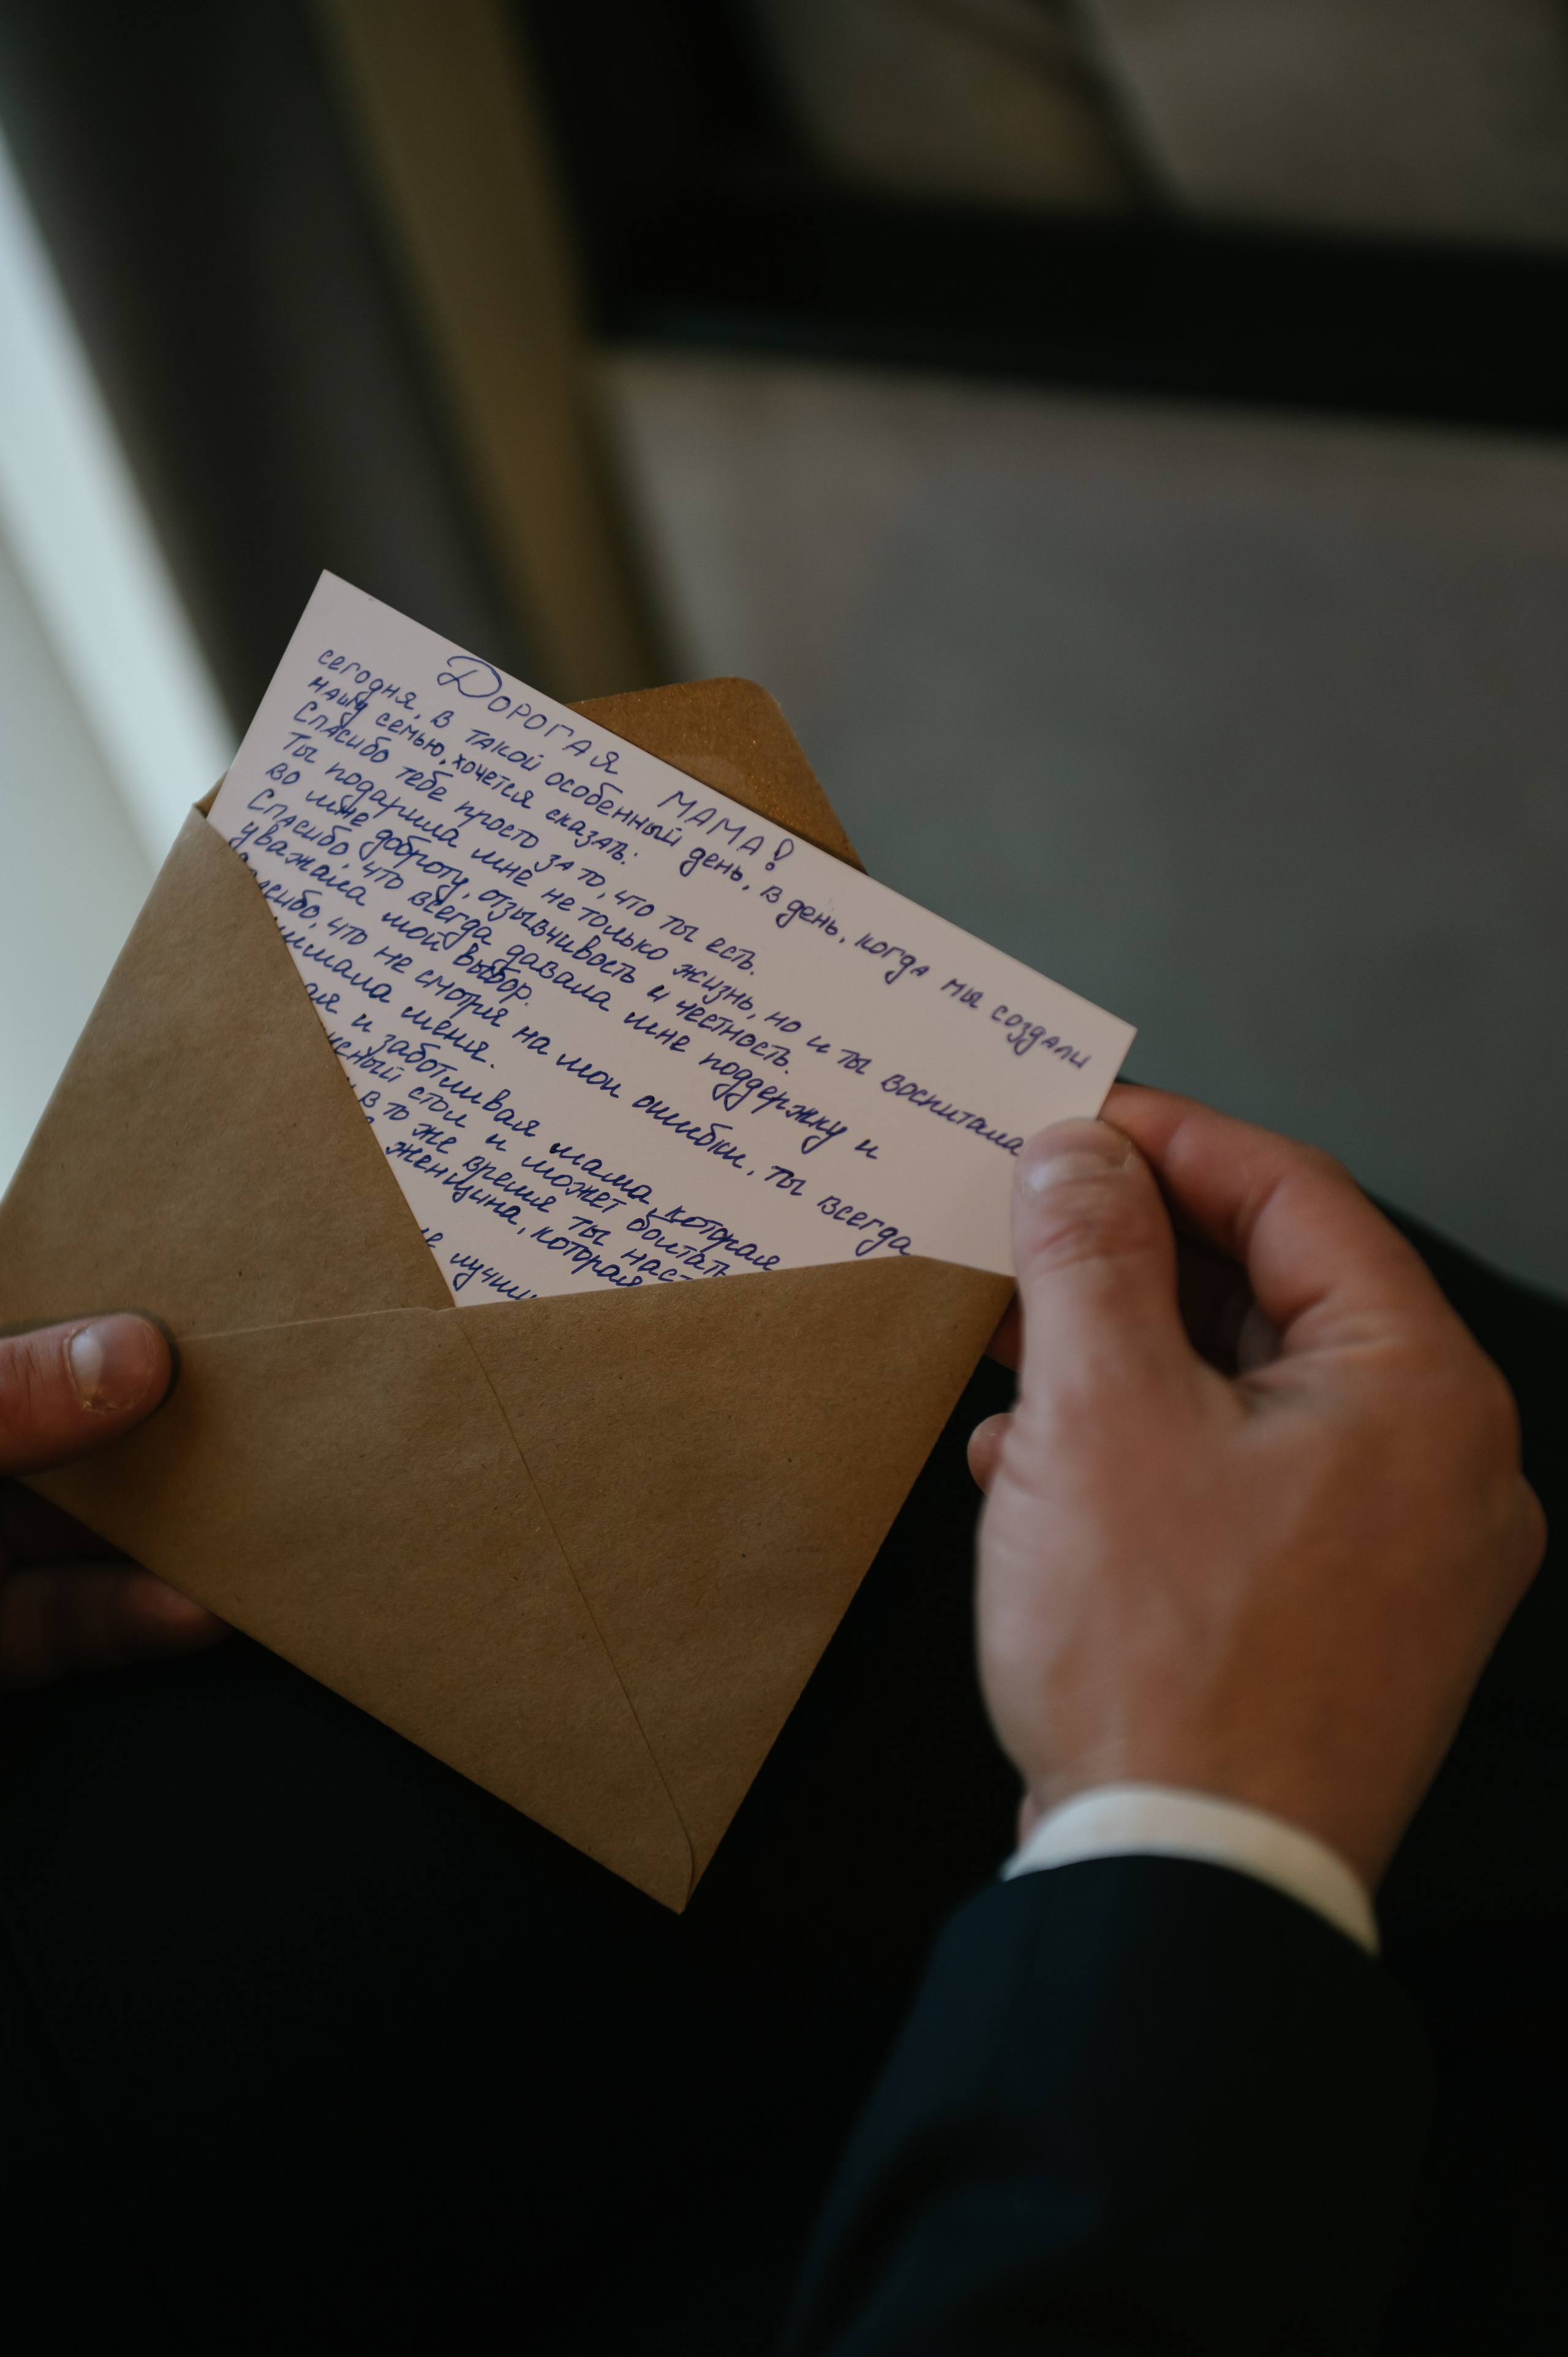 Дорогая мама!
сегодня, в такой особенный день, в день, когда мы создали
нашу семью, хочется сказать:
Спасибо тебе просто за то, что ты есть.
Ты подарила мне не только жизнь, но и ты воспитала
во мне доброту, отзывчивость и честность.
Спасибо, что всегда давала мне поддержку и
уважала мой выбор.
асибо, что не смотря на мои ошибки, ты всегда
имала меня.
ая и заботливая мама, которая
усный стол и может болтать
в то же время ты наст
женщина, которая
е лучши